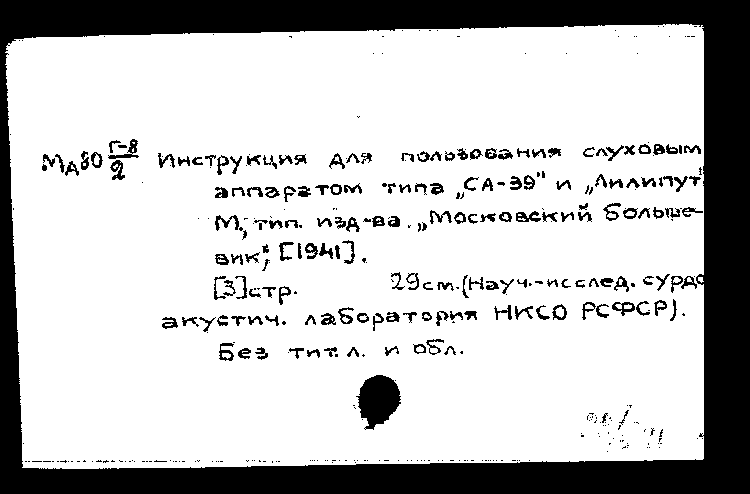 МА80 Г-8/2 Инструкция для пользования слуховым
аппаратом типа „СА-39" и „Лилипут
М., тип. изд-ва „Московский больше-
вик", [1941].
[3]стр. 29см. (Науч.-исслед. сурдо
акустич. лаборатория НКСО РСФСР).
Без тит. л. и обл.